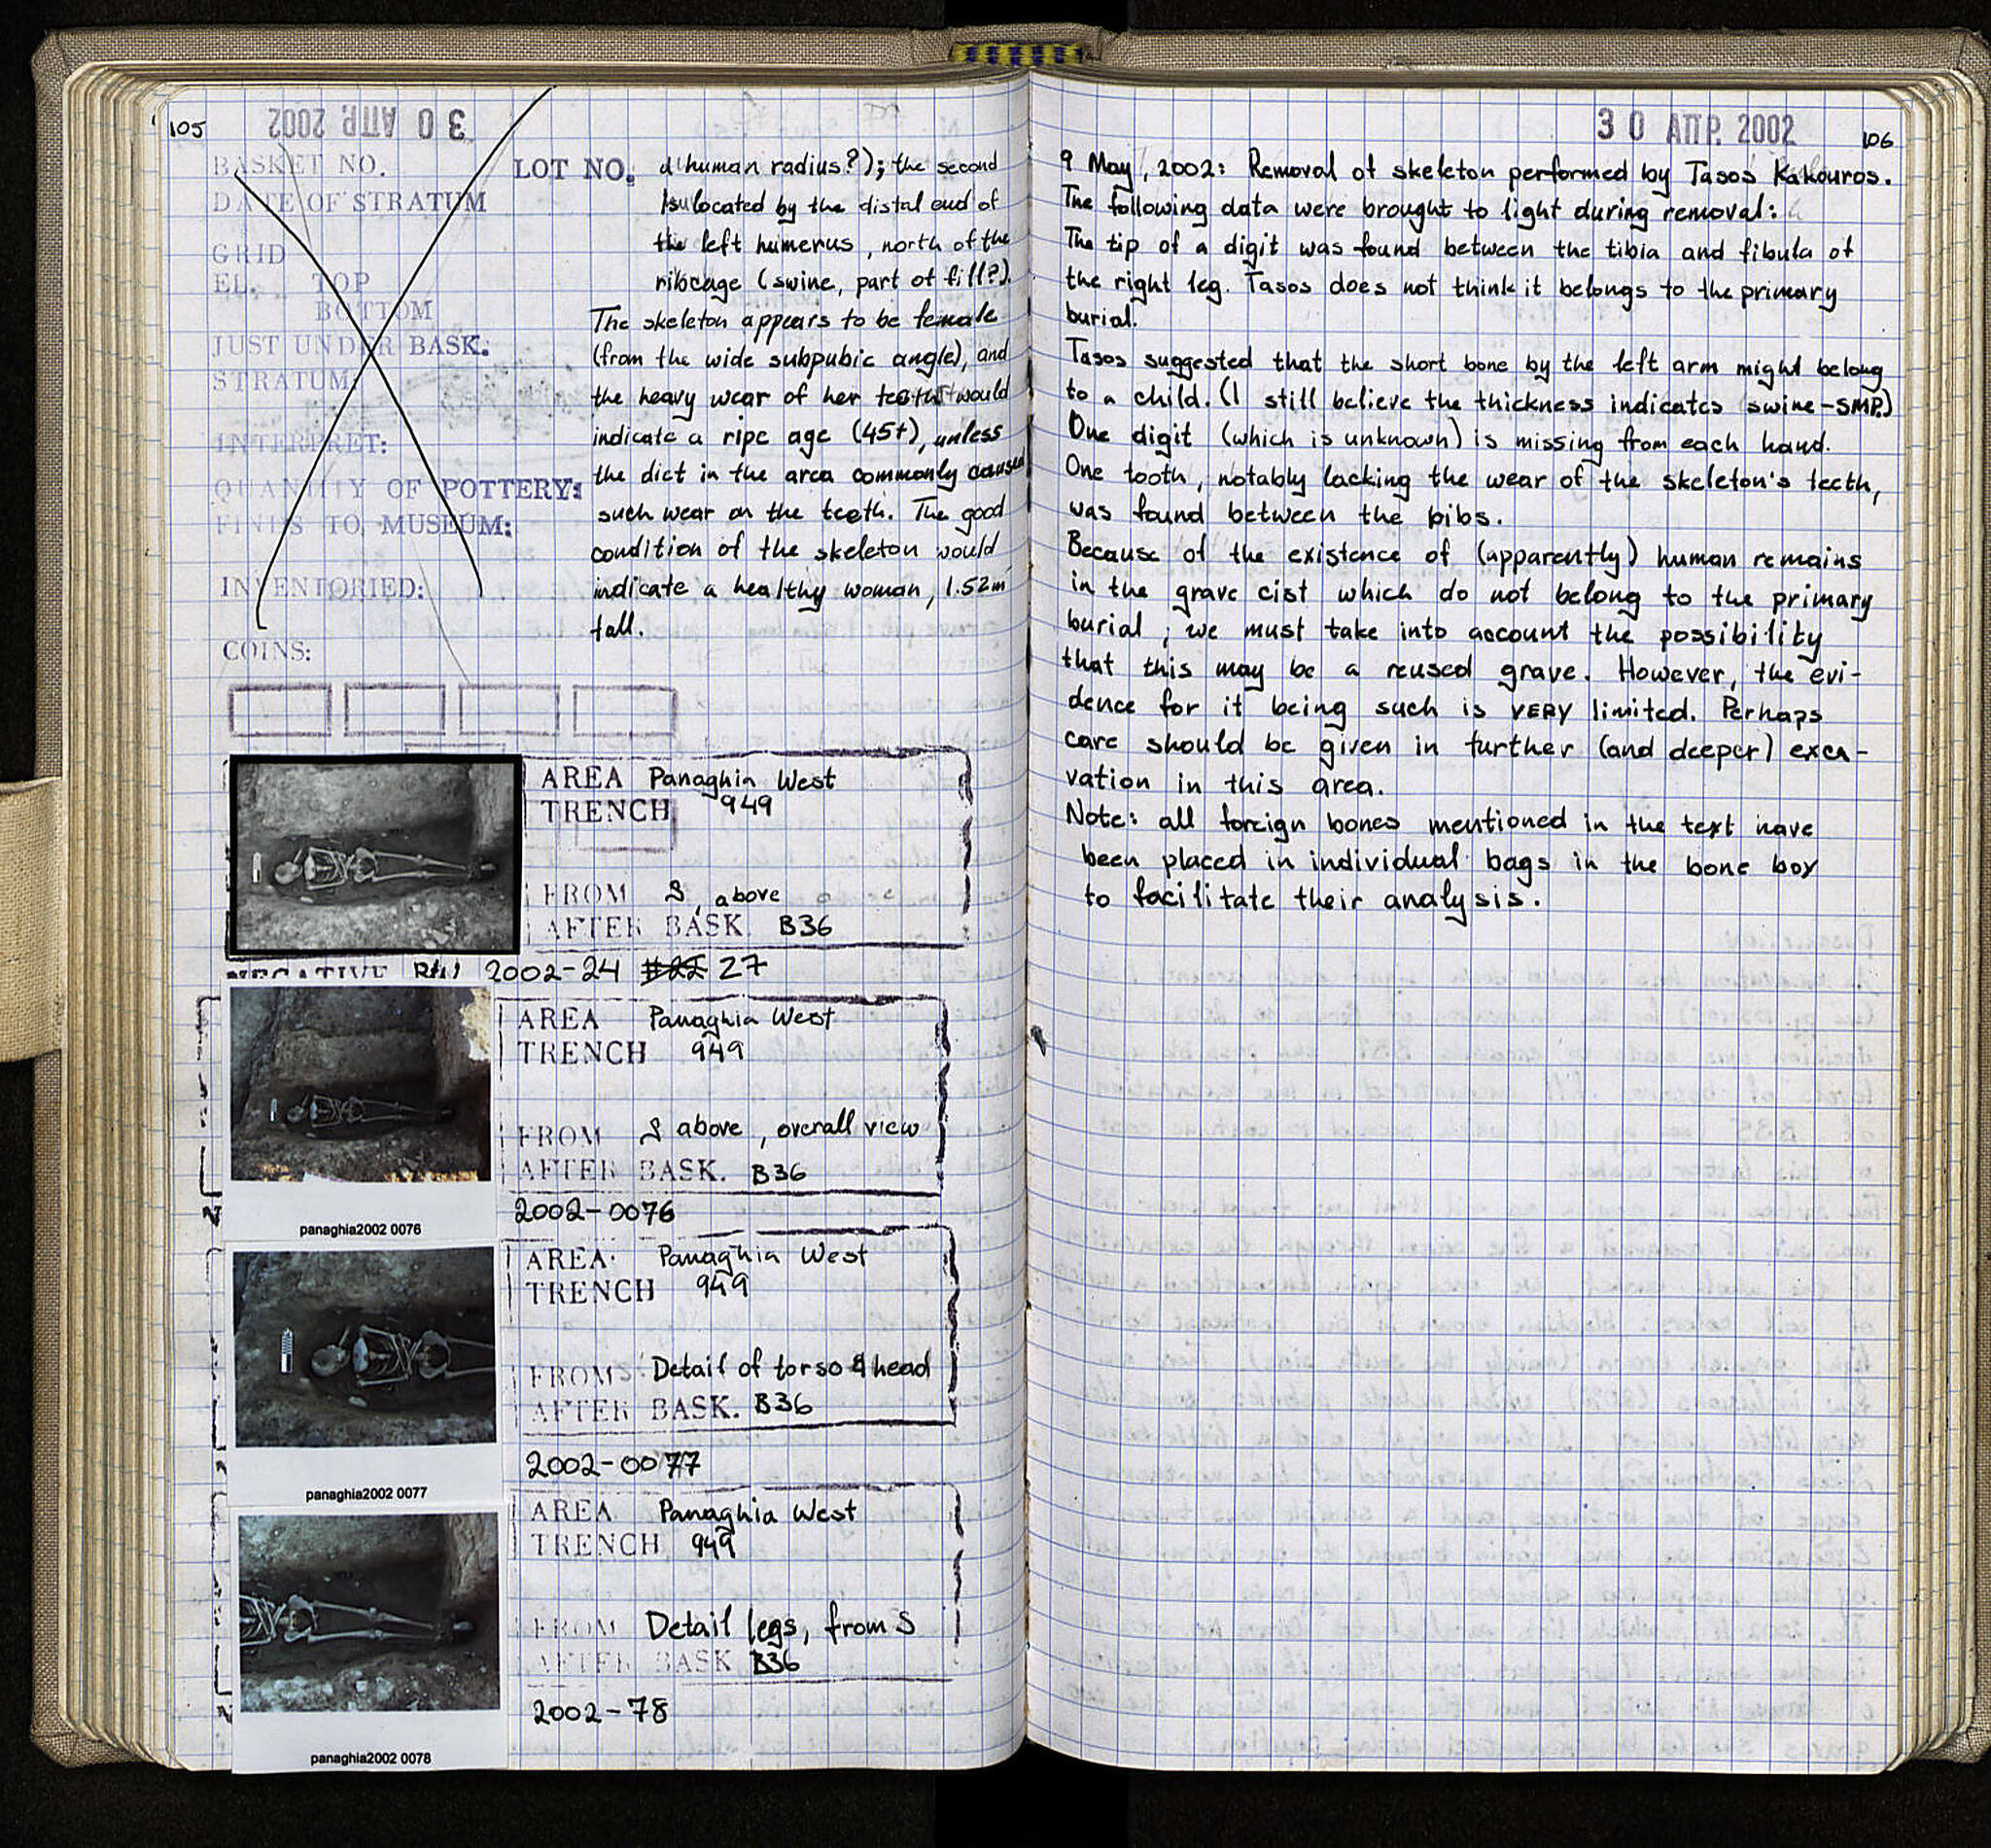 105
30 ΑΠΡ. 2002
BASKET NO.
DATE OF STRATUM
GRID
EL. TOP
BOTTOM
JUST UNDER BASK:
STRATUM:
INTERPRET:
QUANTITY OF POTTERY:
FINDS TO MUSEUM:
INVENTORIED:
COINS:
LOT NO.
human radius?); the second
located by the distal end of
the left humerus, north of the
ribcage (swine, part of fill?).
The skeleton appears to be female
(from the wide subpubic angle), and
the heavy wear of her teeth would
indicate a ripe age (45+), unless
the diet in the area commonly caused
such wear on the teeth. The good
condition of the skeleton would
indicate a healthy woman, 1.52m
tall.
AREA Panaghia West
TRENCH 949
FROM S, above
AFTER BASK. B36
NEGATIVE B/W 2002-24 #22 27
AREA Panaghia West
TRENCH 949
FROM S above, overall view
AFTER BASK. B36
2002-0076
panaghia2002 0076
AREA Panaghia West
TRENCH 949
FROM S Detail of torso & head
AFTER BASK. B36
2002-0077
panaghia2002 0077
AREA Panaghia West
TRENCH 949
FROM Detail legs, from S
AFTER BASK B36
2002-78
panaghia2002 0078
30 ΑΠΡ. 2002
106
9 May, 2002: Removal of skeleton performed by Tasos Kakouros.
The following data were brought to light during removal:
The tip of a digit was found between the tibia and fibula of
the right leg. Tasos does not think it belongs to the primary
burial.
Tasos suggested that the short bone by the left arm might belong
to a child. (I still believe the thickness indicates swine-SMP.)
One digit (which is unknown) is missing from each hand.
One tooth, notably lacking the wear of the skeleton's teeth,
was found between the ribs.
Because of the existence of (apparently) human remains
in the grave cist which do not belong to the primary
burial, we must take into account the possibility
that this may be a reused grave. However, the evi-
dence for it being such is VERY limited. Perhaps
care should be given in further (and deeper) exca-
vation in this area.
Note: all foreign bones mentioned in the text have
been placed in individual bags in the bone box
to facilitate their analysis.